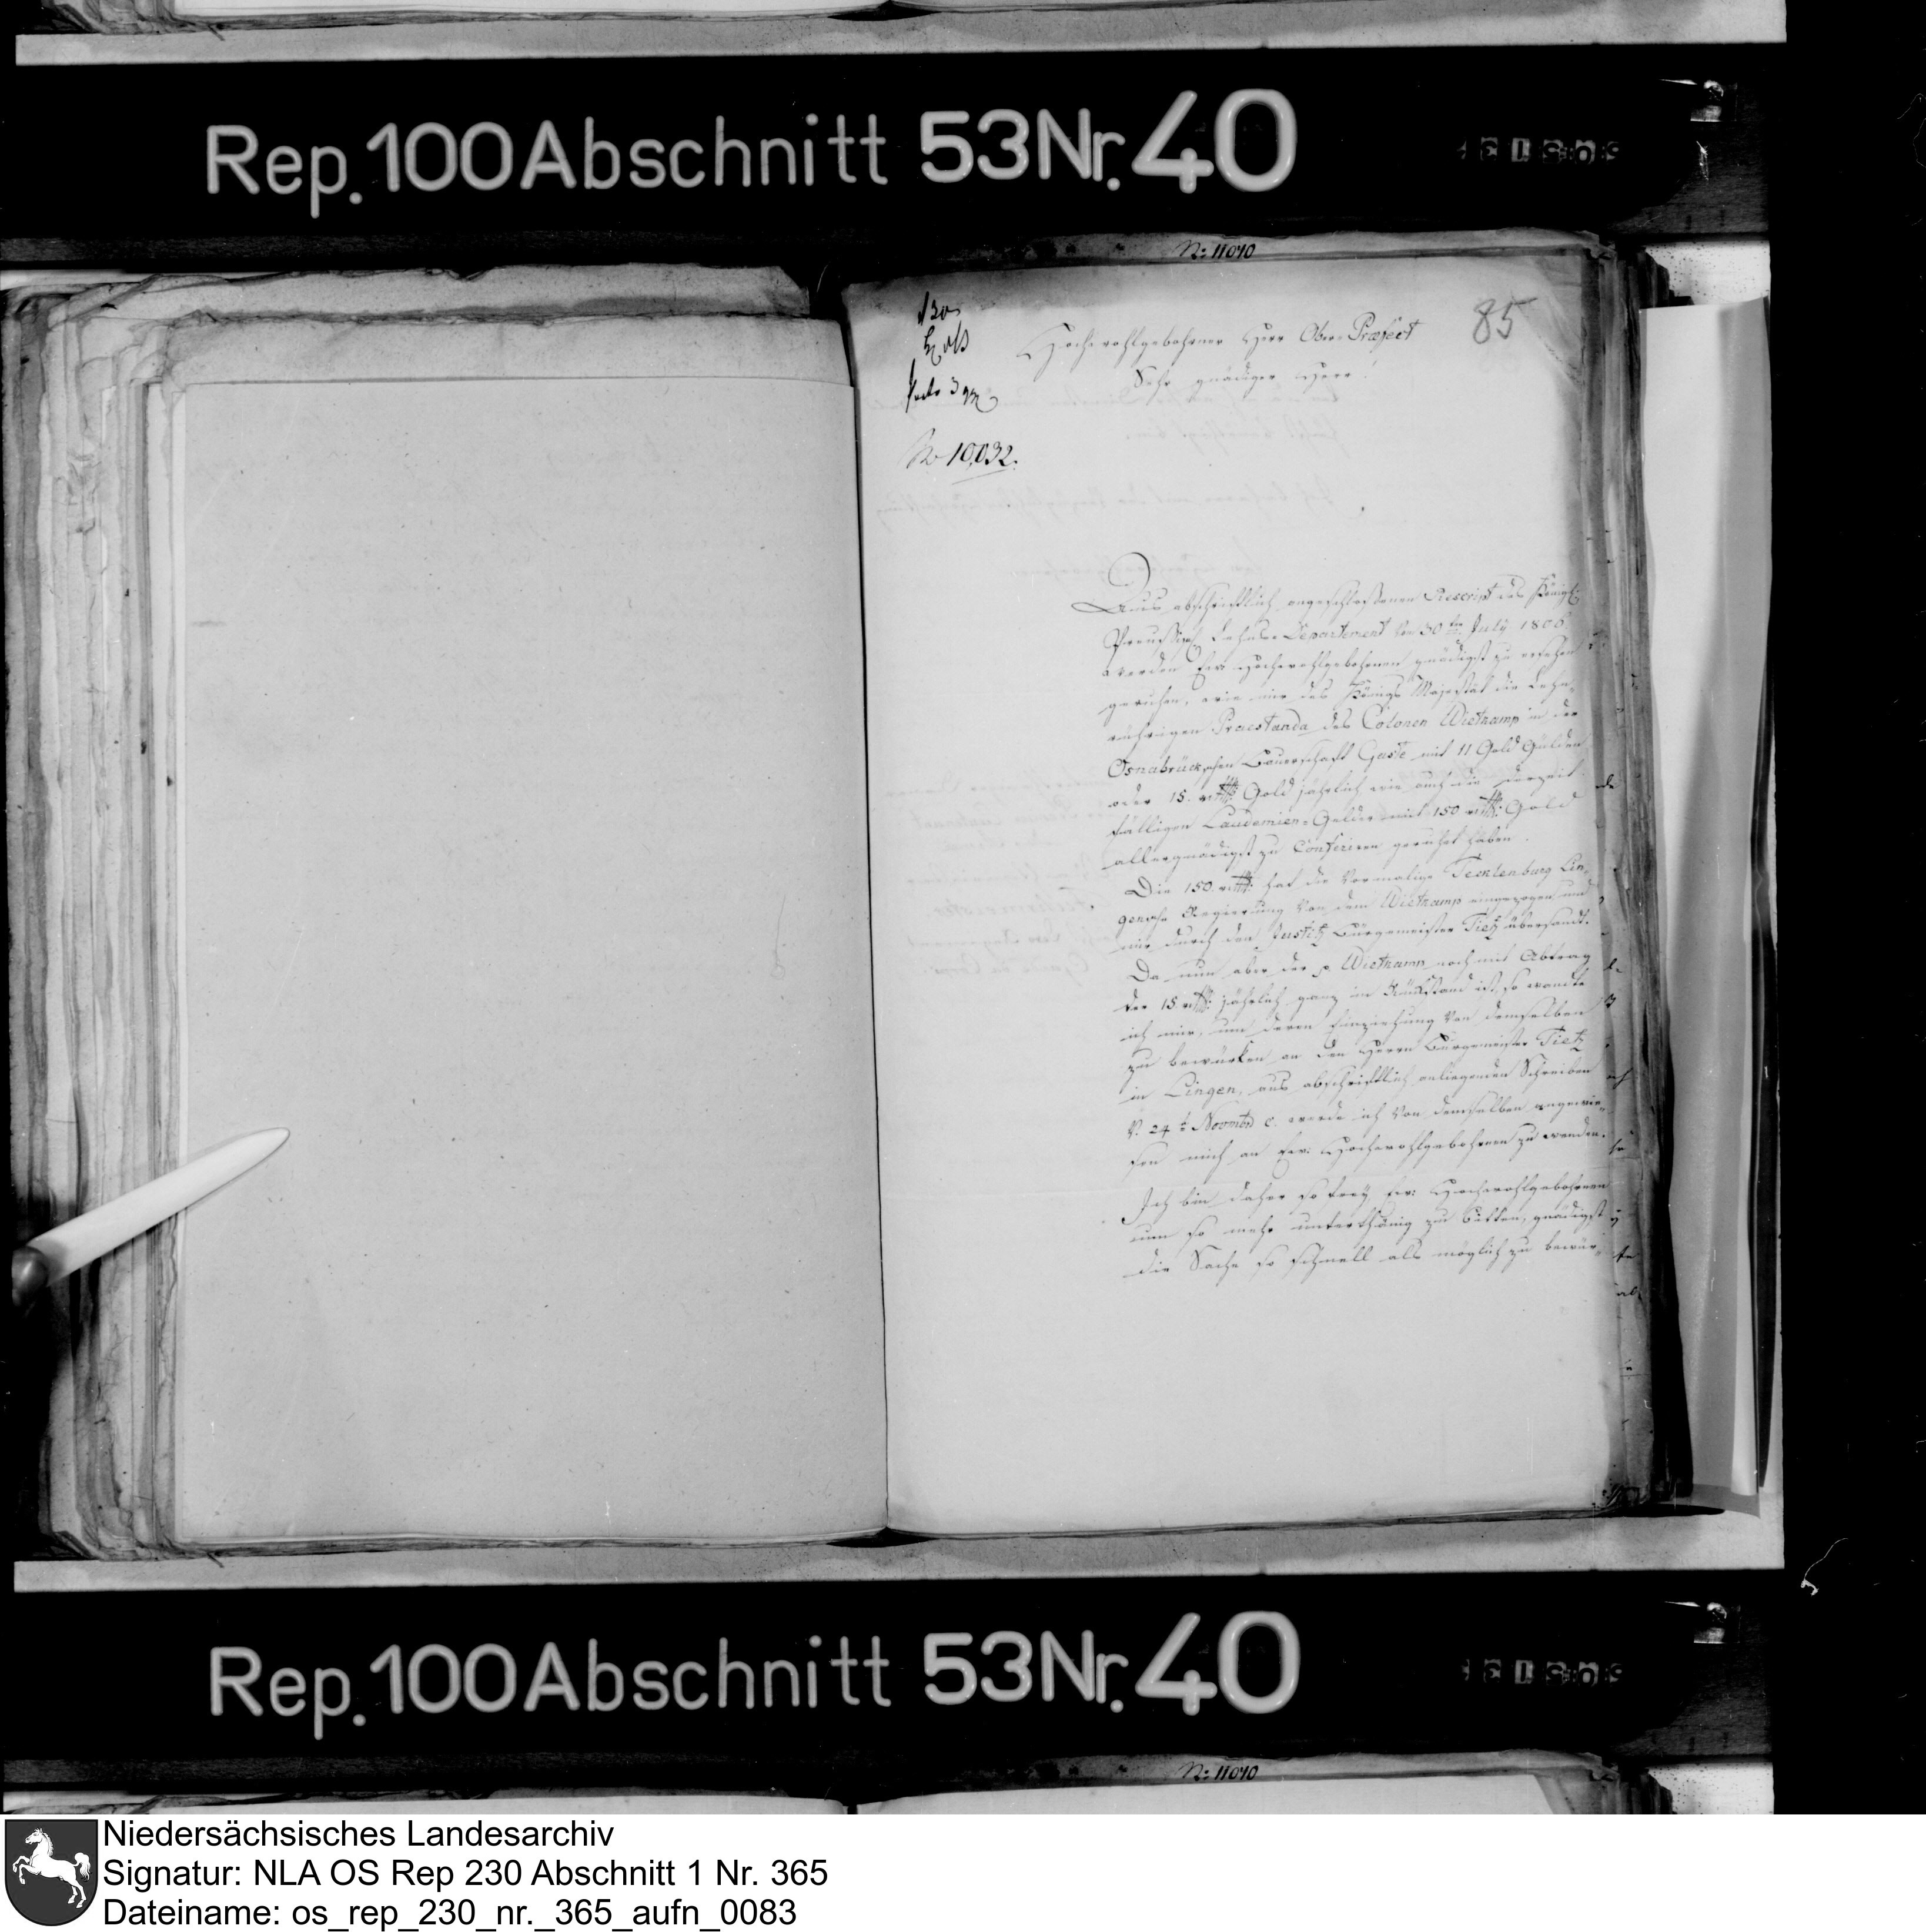 Rep. 100 Abschnitt 53 Nr. 40
N: 11040
85
No 10,032.
Hochwohlgebohrner Herr Ober-Præfect
Sehr gnädiger Herr!
Aus abschriftlich angeschloßenen Rescript des Königl:
Preußisch Lehns-Departement vom 30ten July 1806
werden Ew: Hochwohlgebohrnen gnädigst zu ersehen
geruhen, wie mir des Königs Majestät die Lehn-
rührigen Praestanda des Colonen Wietkamp in der
Osnabrückschen Bauerschaft Gaste mit 11 Gold Gülden
oder 15. rtlr: Gold jährlich wie auch die derzeit
fälligen Laudemien-Gelder mit 150 rtlr: Gold
allergnädigst zu Conferiren geruhet haben.
Die 150. rtlr: hat die Vormalige Tecklenburg Lin-
gensche Regierung von dem Wietkamp eingezogen und
mir durch den Justitz Bürgemeister Tietz übersandt.
Da nun aber der p. Wietkamp noch mit Abtrag
der 15 rtlr: jährlich ganz im Rückstand ist, so wandte
ich mir, um deren Einziehung von demselben
zu bewürken an den Herrn Bürgemeister Tietz
in Lingen, aus abschriftlich anliegenden Schreiben
v. 24t Novmbr c. werde ich von demselben angewie-
sen mich an Ew: Hochwohlgebohrnen zu wenden.
Ich bin daher so frey Ew: Hochwohlgebohrnen
um so mehr unterthänig zu bitten, gnädigst
die Sache so schnell als möglich zu bewür-
Rep. 100 Abschnitt 53 Nr. 40
N: 11040
Niedersächsisches Landesarchiv
Signatur: NLA OS Rep 230 Abschnitt 1 Nr. 365
Dateiname: os_rep_230_nr._365_aufn_0083